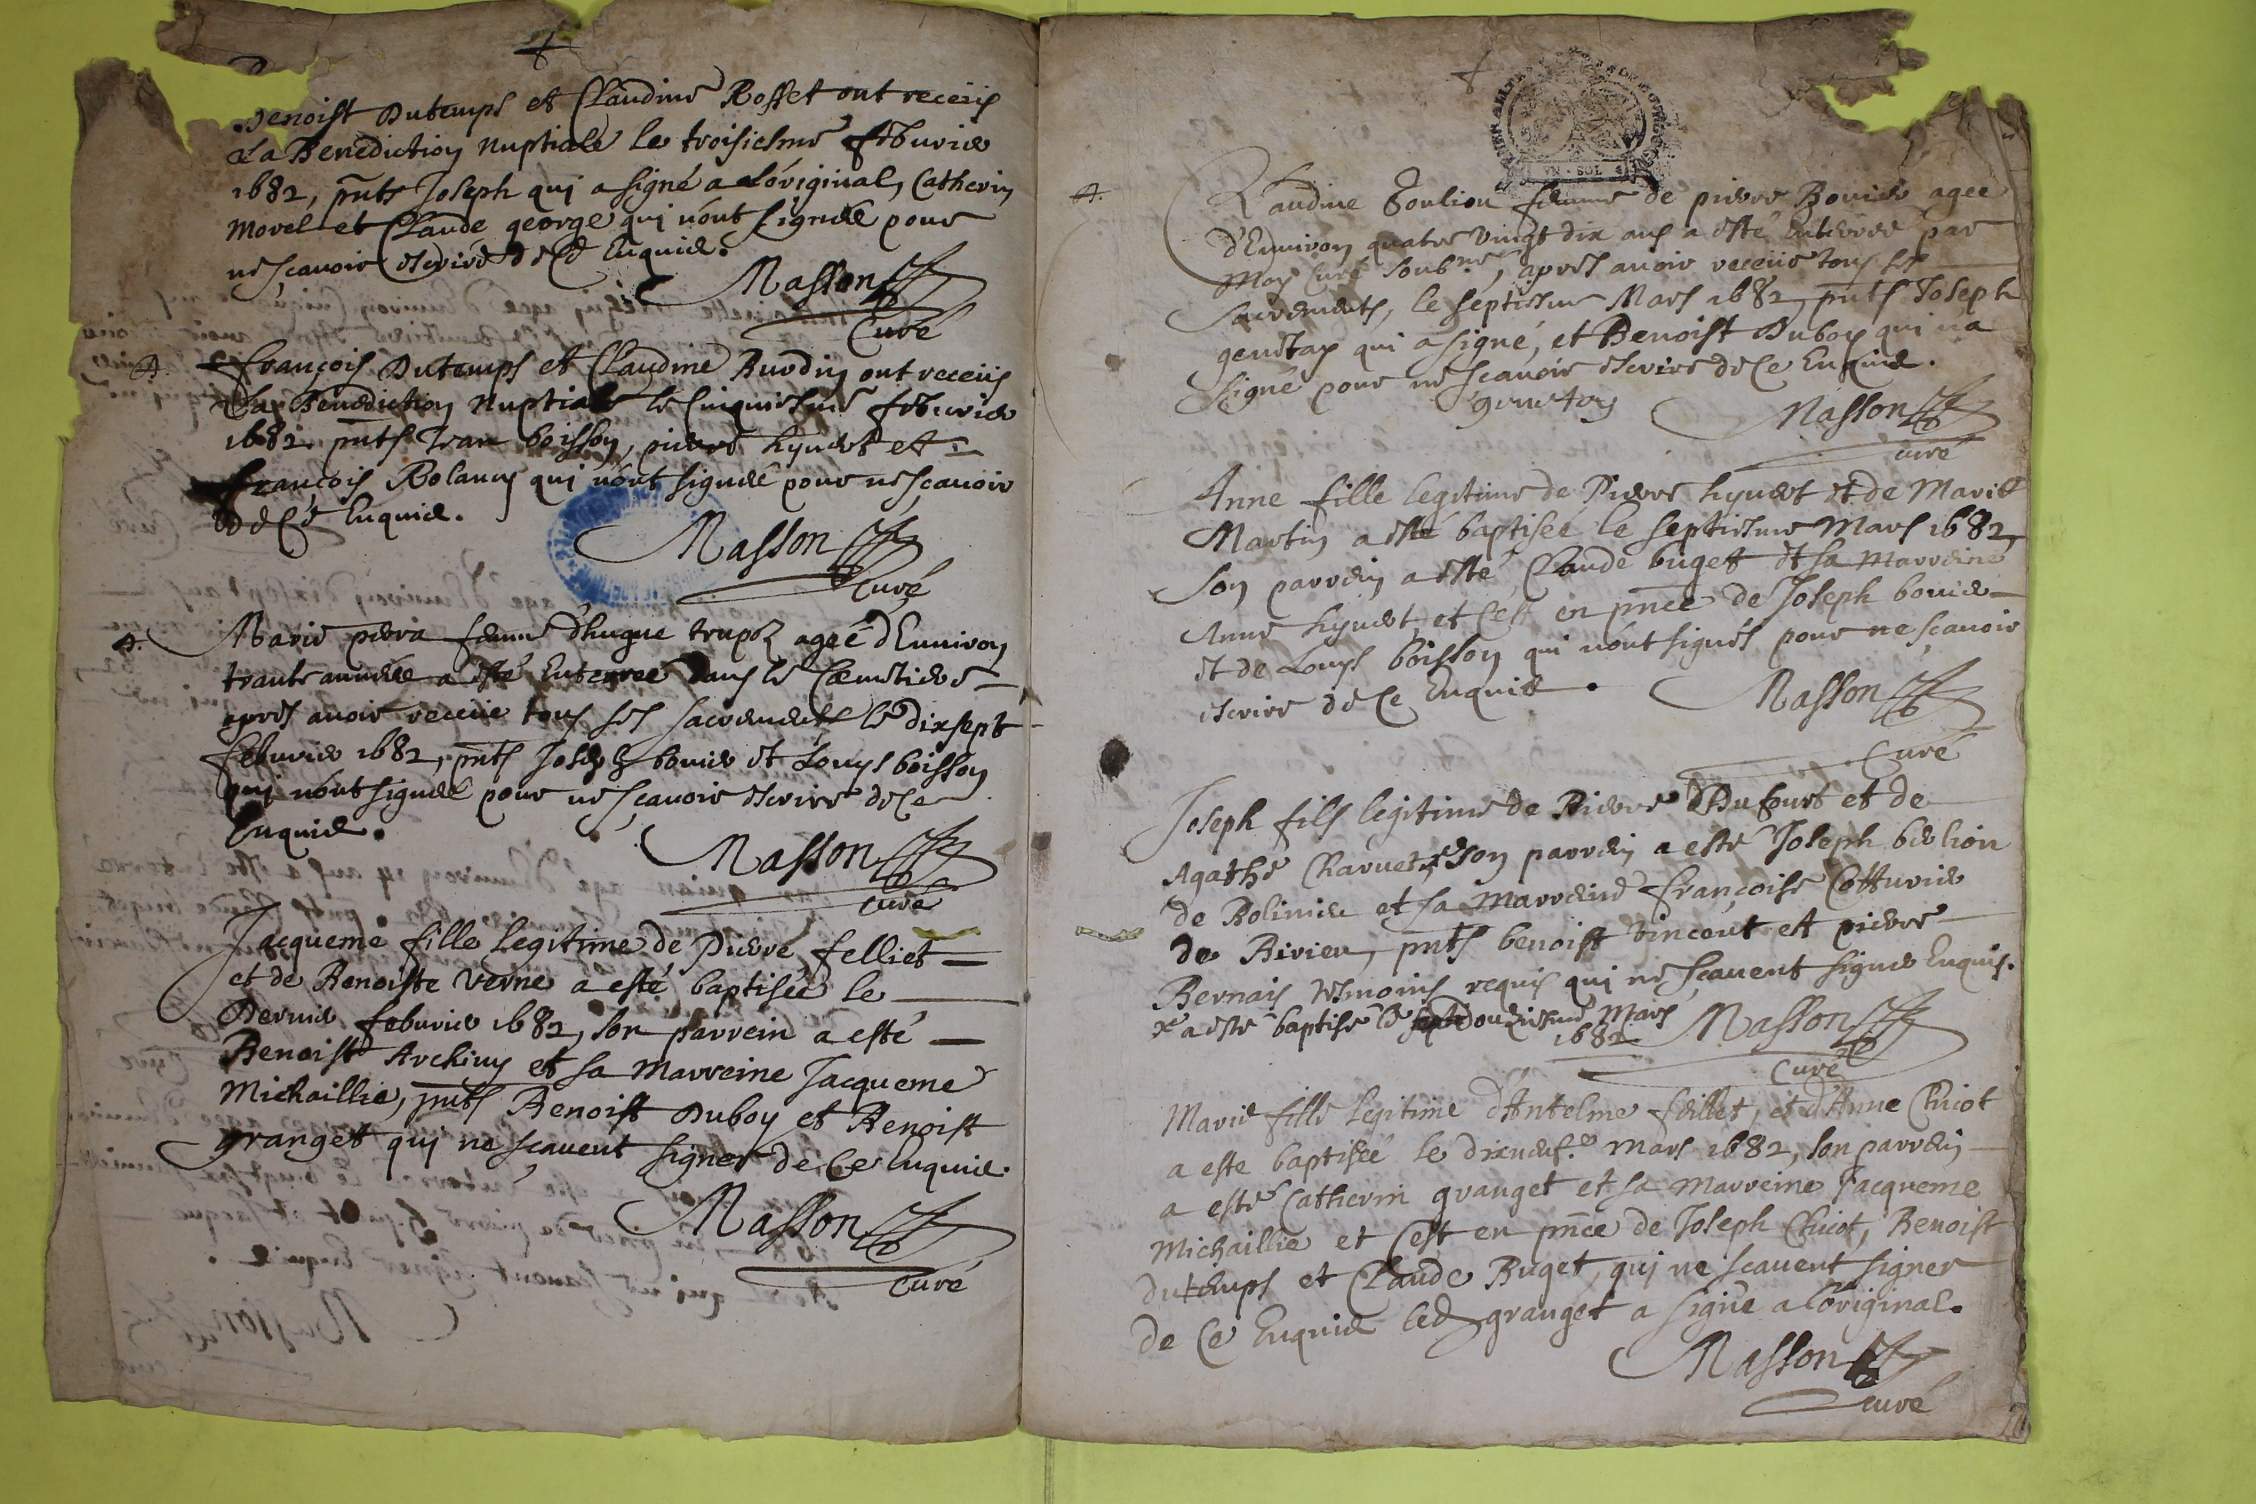 Benoist Dutemps et Claudine Rosset ont receus
La Benediction nuptiale le troisiesme februier
1682, pnts Joseph qui a signé a l'original, Catherin
Morel et Claude george qui n'ont signéé pour
ne sçavoir escrire de ce Enquis.
Masson
Curé
A.
françois Dutemps et Claudine Burdin ont receus
La Benediction Nuptiale le Cinquiesme februier
1682. pnts Jean boisson, pierre hyvert et
françois Rolany qui n'ont signéé pour ne sçavoir
de ce Enquis.
Masson
Curé
A.
Marie femme d'hugue agéé d'Environ
trante annéée a esté Enterréé dans le Cemetiere
apres avoir receue tous ses sacrements le dixsept
februier 1682, pnts Joseph bouier et Louys boisson
qui n'ont signéé pour ne sçavoir escrire de ce
Enquis.
Masson
Curé
Jacqueme fille legitime de Pierre felliet
et de Benoiste verne a esté baptiséé le
Dernier februier 1682, son parrein a esté
Benoist et sa Marreine Jacqueme
Michaillie, pnts Benoist Duboy et Benoist
granget qui ne sçavent signer de Ce Enquis.
Masson
Curé
VN · SOL
A.
Claudine femme de pierre Bouier agee
d'Environ quatre vingt dix ans a esté Enterréé par
Moy Curé soubné, apres avoir receue tous les
sacrements, le septiesme Mars 1682, pnts Joseph
genetay qui a signé, et Benoist Duboy qui n'a
signé pour ne sçavoir escrire de Ce Enquis.
genetay
Masson
Curé
Anne fille legitime de Pierre hyvert et de Marie
Martin a esté baptiséé le septiesme Mars 1682,
son parrein a esté Claude buget et sa Marreine
Anne hyvert, et Cest en pnce de Joseph bouier
et de Louys boisson qui n'ont signés pour ne sçavoir
escrire de Ce Enquis.
Masson
Curé
Joseph fils legitime de Pierre Dufourt et de
Agathe Charvet, son parrein a esté Joseph
de Bolinieu et sa Marreine françoise Cotturier
de Birieu, pnts benoist Vincent et pierre
Bernais tesmoins requis qui ne sçavent signer Enquis.
a este baptisé le ouziesme Mars
1682
Masson
Curé
Marie fille legitime d'Antelme feillet, et d'Anne Chicot
a este baptiséé le dixneuf.e Mars 1682, son parrein
a esté Catherin granget et sa Marreine Jacqueme
Michaillie et Cest en pnce de Joseph Chicot, Benoist
dutemps et Claude Buget, qui ne scavent signer
de Ce Enquis led granget a signé a l'original.
Masson
Curé